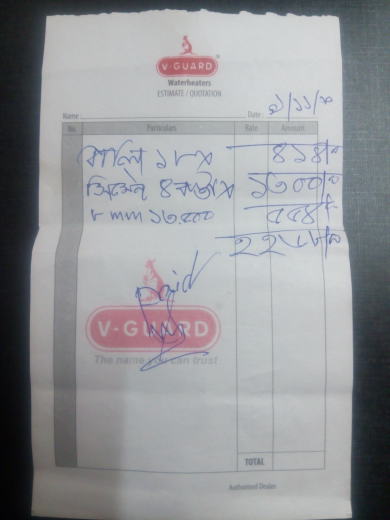 V-GUARD
Waterheaters
ESTIMATE / QUOTATION
Name : Date :
No. Particulars Rate Amount
বালি ১৮ ৪১৪
সিমেন্ট ৪ বস্তা ১৩০০
৮ mm ১৩.৫০০ ৫৫৪
Paid
V-GUARD
The name you can trust
TOTAL
Authorised Dealer